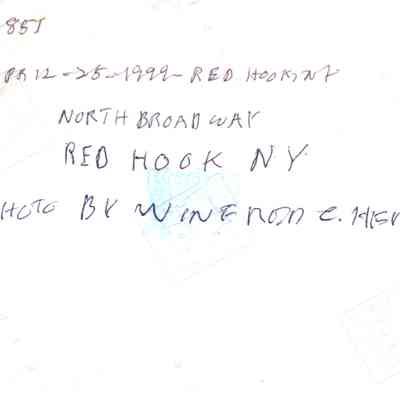 85J
PR 12-25-1999-RED HOOK, NY
NORTH BROADWAY
RED HOOK NY
HOTO BY WINFRED C.